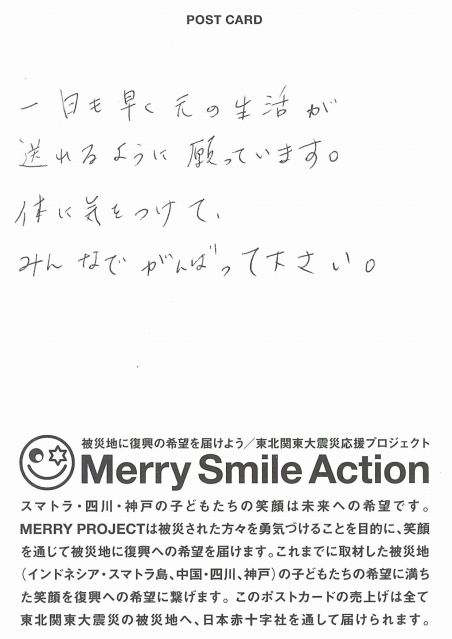 POST CARD
一日も早く元の生活が
送れるように願っています。
体に気をつけて、
みんなでがんばって下さい。
被災地に復興の希望を届けよう／東北関東大震災応援プロジェクト
Merry Smile Action
スマトラ・四川・神戸の子どもたちの笑顔は未来への希望です。
MERRY PROJECTは被災された方々を勇気づけることを目的に、笑顔
を通じて被災地に復興への希望を届けます。これまでに取材した被災地
（インドネシア・スマトラ島、中国・四川、神戸）の子どもたちの希望に満ち
た笑顔を復興への希望に繋げます。このポストカードの売上げは全て
東北関東大震災の被災地へ、日本赤十字社を通して届けられます。